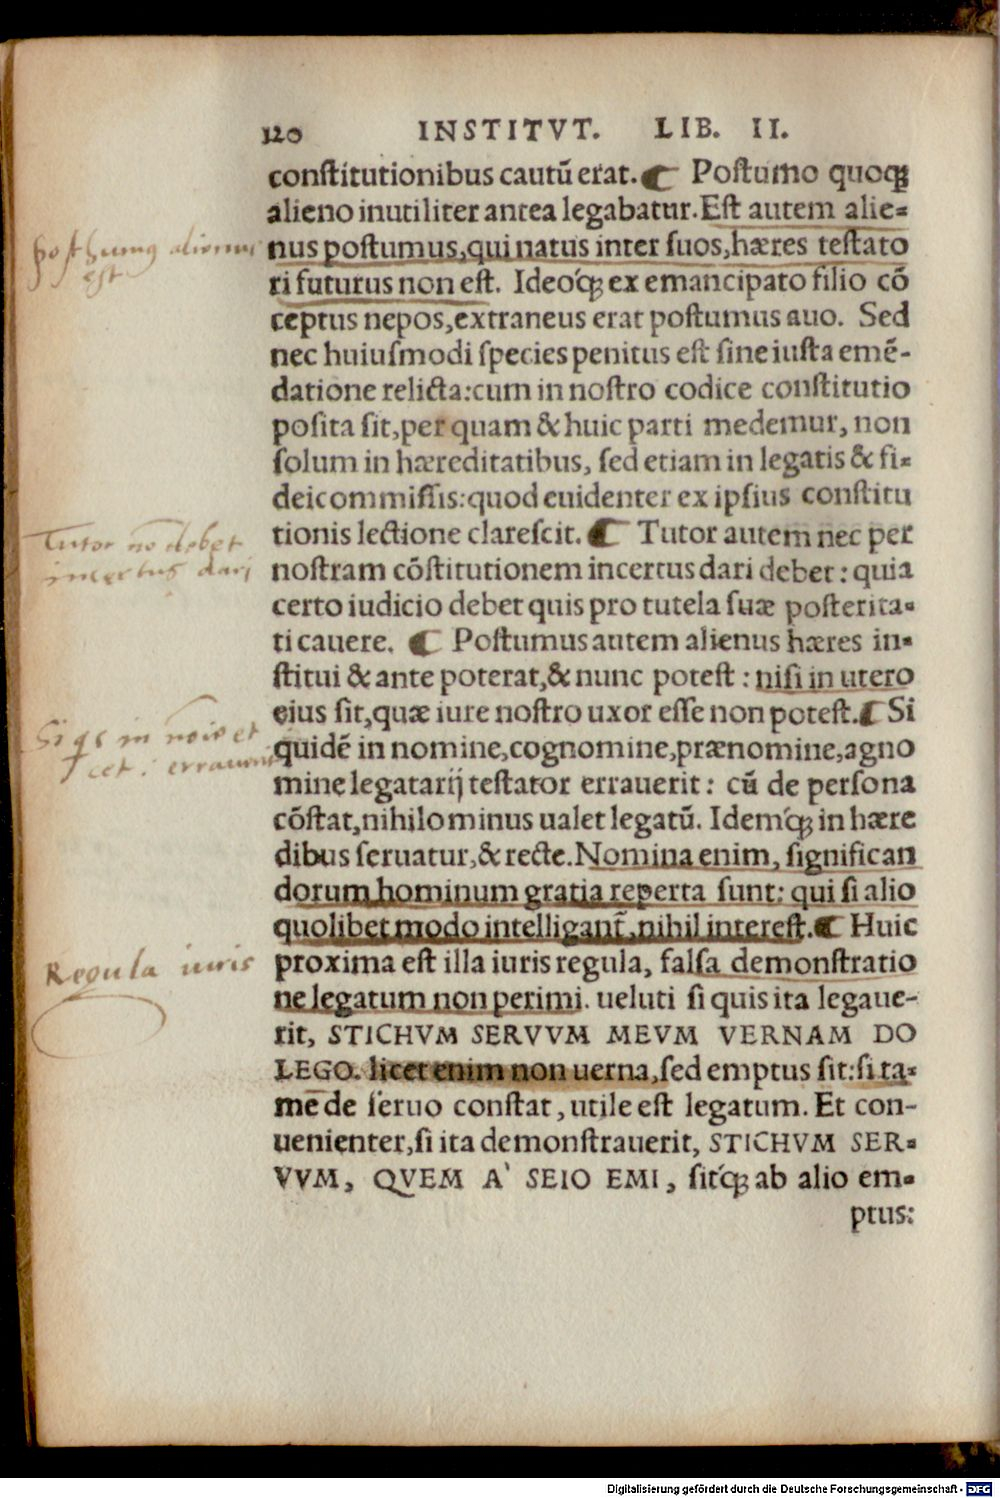 120 INSTITVT. LIB. II.
constitutionibus cautū erat. Postumo quoq́
alieno inutiliter antea legabatur. Est autem alie=
nus postumus, qui natus inter suos, hæres testato
ri futurus non est. Ideoq́ ex emancipato filio cō
ceptus nepos, extraneus erat postumus auo. Sed
nec huiusmodi species penitus est sine iusta emē-
datione relicta: cum in nostro codice constitutio
posita sit, per quam & huic parti medemur, non
solum in hæreditatibus, sed etiam in legatis & fi=
deicommissis: quod euidenter ex ipsius constitu
tionis lectione clarescit. Tutor autem nec per
nostram cōstitutionem incertus dari debet: quia
certo iudicio debet quis pro tutela suæ posterita=
ti cauere. Postumus autem alienus hæres in=
stitui & ante poterat, & nunc potest: nisi in utero
eius sit, quæ iure nostro uxor esse non potest. Si
quidē in nomine, cognomine, prænomine, agno
mine legatarij testator errauerit: cū de persona
cōstat, nihilominus ualet legatū. Idemq́ in hære
dibus seruatur, & recte. Nomina enim, significan
dorum hominum gratia reperta sunt: qui si alio
quolibet modo intelligant̃, nihil interest. Huic
proxima est illa iuris regula, falsa demonstratio
ne legatum non perimi. ueluti si quis ita legaue-
rit, STICHVM SERVVM MEVM VERNAM DO
LEGO. licet enim non uerna, sed emptus sit: si ta=
mē de seruo constat, utile est legatum. Et con-
uenienter, si ita demonstrauerit, STICHVM SER=
VVM, QVEM A' SEIO EMI, sitq́ ab alio em=
ptus:
posthumus alienus
est
Tutor nō debet
incertus dari
Si qs in noīe et
cet. errauerit
Regula iuris
Digitalisierung gefördert durch die Deutsche Forschungsgemeinschaft - DFG